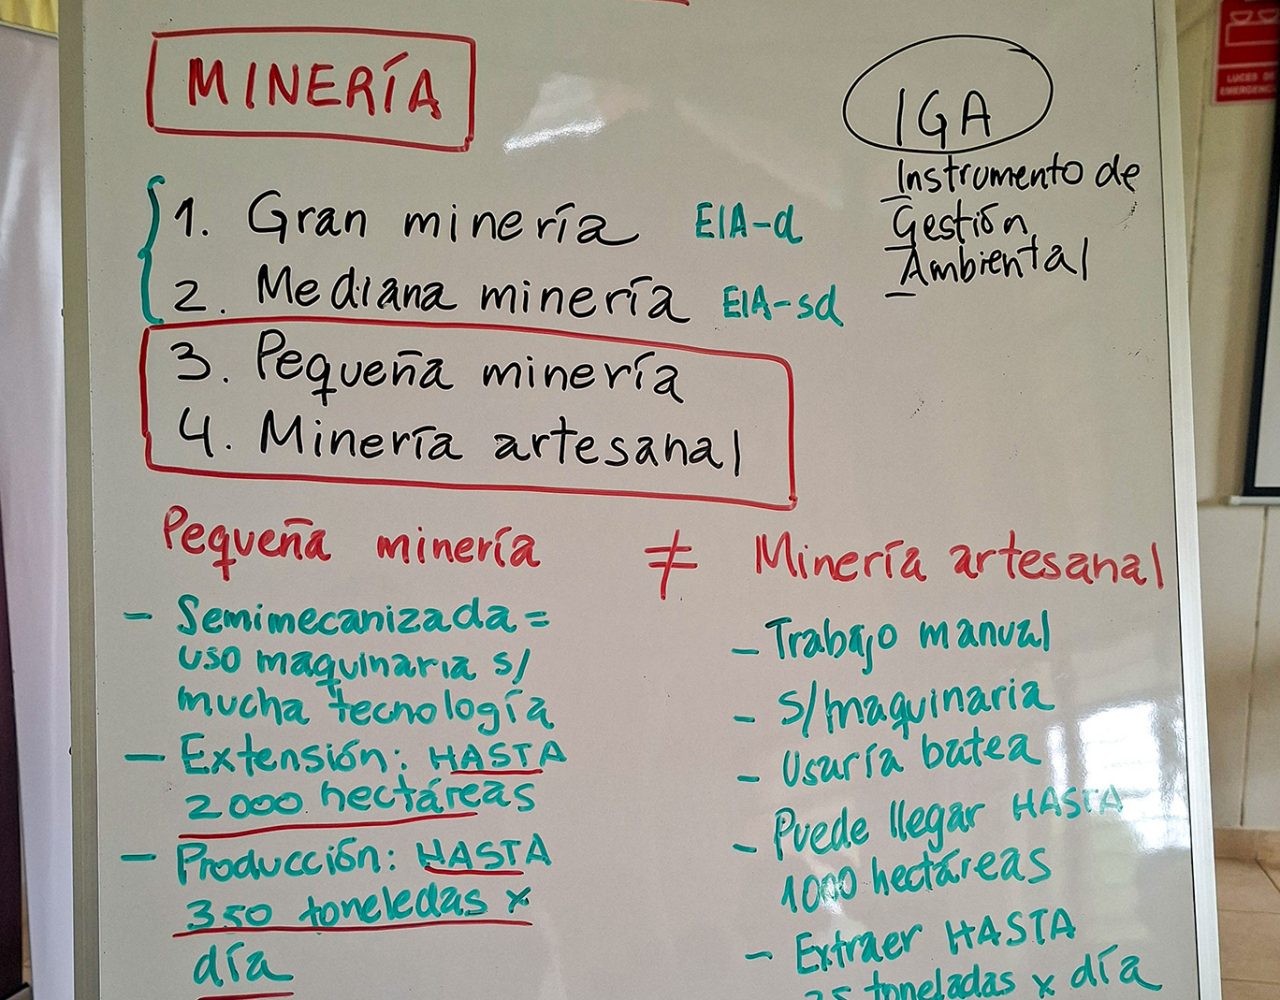 MINERÍA
IGA
Instrumento de
Gestión
Ambiental
1. Gran minería EIA-d
2. Mediana minería EIA-sd
3. Pequeña minería
4. Minería artesanal
Pequeña minería ≠ Minería artesanal
- Semimecanizada =
uso maquinaria s/
mucha tecnología
- Extensión: HASTA
2000 hectáreas
- Producción: HASTA
350 toneledas x
día
- Trabajo manual
- s/maquinaria
- Usaría batea
- Puede llegar HASTA
1000 hectáreas
- Extraer HASTA
25 toneladas x día
LUCES DE
EMERGENCIA